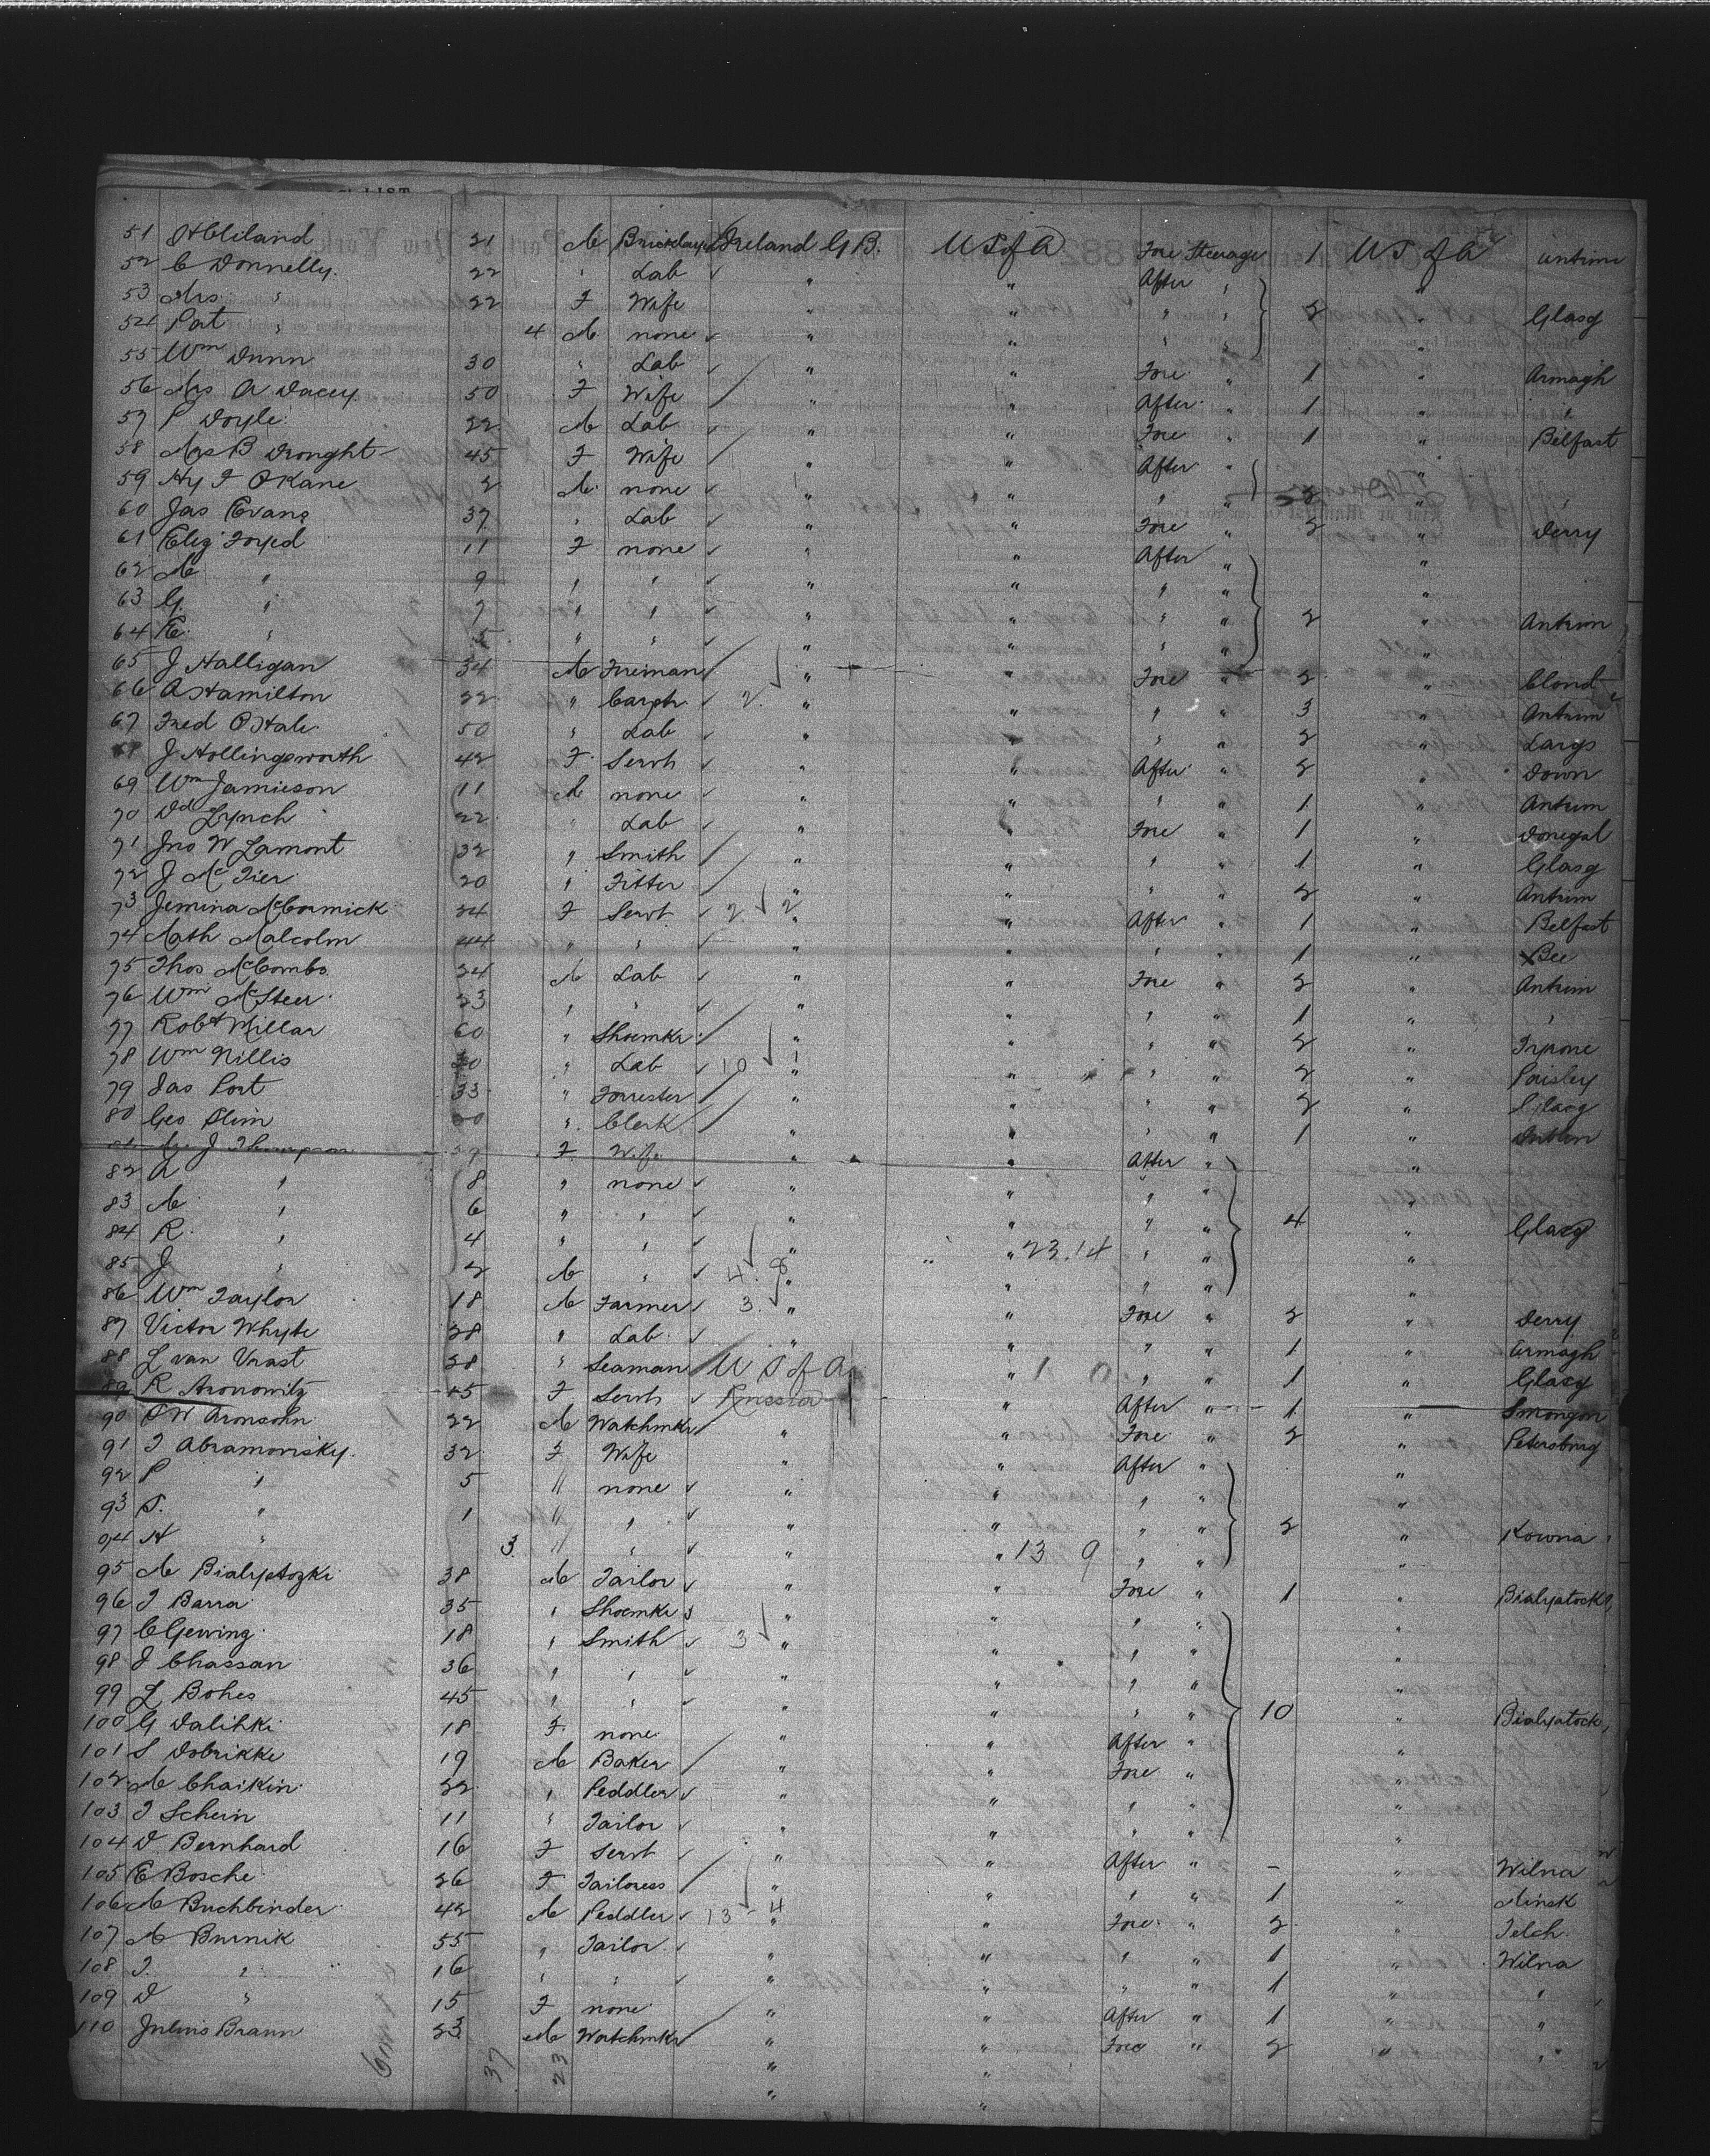 LIST
51 H Cliland 21 M Bricklayer Ireland G B. US of A Fore Steerage 1 US of A Antrim
52 C Donnelly 22 " Lab " " After " "
53 Mrs " 22 F Wife " " " " 2 " Glasg
54 Pat " 4 M none " " " " "
55 Wm Dunn 30 " Lab " " Fore " 1 " Armagh
56 Mrs A Dacey 50 F Wife " " After " 1 " "
57 P Doyle 22 M Lab " " Fore " 1 " Belfast
58 Mrs B Drought 45 F Wife " " After " "
59 Hy J OKane 2 M none " " " " 2 " "
60 Jas Evans 37 " Lab " " Fore " 2 " Derry
61 Eliz 11 F none " " After " "
62 M " 9 " " " " " " "
63 G " 7 " " " " " " 2 " Antrim
64 E " 5 " " " " " " "
65 J Halligan 34 M Fireman " " Fore " 2 "
66 A Hamilton 22 " Carptr 2 " " " " 3 " Antrim
67 Fred OHale 50 " Lab " " " " 2 " Largs
68 J Hollingsworth 42 F Servt " " After " 2 " Down
69 Wm Jamieson 11 M none " " " " 1 " Antrim
70 Dd Lynch 22 " Lab " " Fore " 1 " Donegal
71 Jno W Lamont 32 " Smith " " " " 1 " Glasg
72 J McTier 20 " Fitter " " " " 2 " Antrim
73 Jemina McCormick 24 F Servt 2 2 " " After " 1 " Belfast
74 Math Malcolm 44 " " " " " " 1 "
75 Thos McCombs 24 M Lab " " Fore " 2 " Antrim
76 Wm McSteer 23 " " " " " " 1 " "
77 Robt Millar 60 " Shoemkr " " " " 2 " Tyrone
78 Wm Nillis " Lab 10 1 " " " " 2 " Paisley
79 Jas Port 33 " Forrester " " " " 2 " Glasg
80 Geo Slim 20 " Clerk " " " " 1 "
81 Mrs J Thompson 29 F Wife " " After " "
82 A " 8 " none " " " " "
83 M " 6 " " " " " " 4 " Glasg
84 R " 4 " " " " 23.14 " " "
85 J " 2 M " 4. 8 " " " " "
86 Wm Taylor 18 M Farmer 3 " " Fore " 2 " Derry
87 Victor Whyte 28 " Lab " " " " 1 " Armagh
88 L van Vrast 28 " Seaman U S of A " 1 0 " " 1 " Glasg
89 R Aronowitz 45 F Servt Russia " After " 1 " Smorgon
90 S W Aronsohn 22 M Watchmkr " " Fore " 2 " Petersburg
91 J Abramovisky 32 F Wife " " After " "
92 P " 5 " none " " " " "
93 S. " 1 " " " " " " 2 " Kowna
94 H " 3 " " " " 13 9 " " "
95 M Bialystozki 38 M Tailor " " Fore " 1 " Bialystock
96 J Barra 35 " Shoemkr " " " " "
97 C Gewing 18 " Smith 3 " " " " "
98 J Chassan 36 " " " " " " "
99 L Bohes 45 " " " " " " 10 " Bialystock
100 G Dalihki 18 F none " " After " "
101 S Dobrikke 19 M Baker " " Fore " "
102 M Chaikin 22 " Peddler " " " " "
103 J Schein 11 " Tailor " " " " "
104 D Bernhard 16 F Servt " " After " - " Wilna
105 E Bosche 26 F Tailoress " " " " 1 " Minsk
106 M Buchbinder 42 M Peddler 13 - 4 " " Fore " 2 " Telch
107 M Burnik 55 " Tailor " " " " 1 " Wilna
108 J. " 16 " " " " " " 1 " "
109 D " 15 F none " " After " 1 " "
110 Julius Braun 23 M Watchmkr " " Fore " 2 " "
37 23